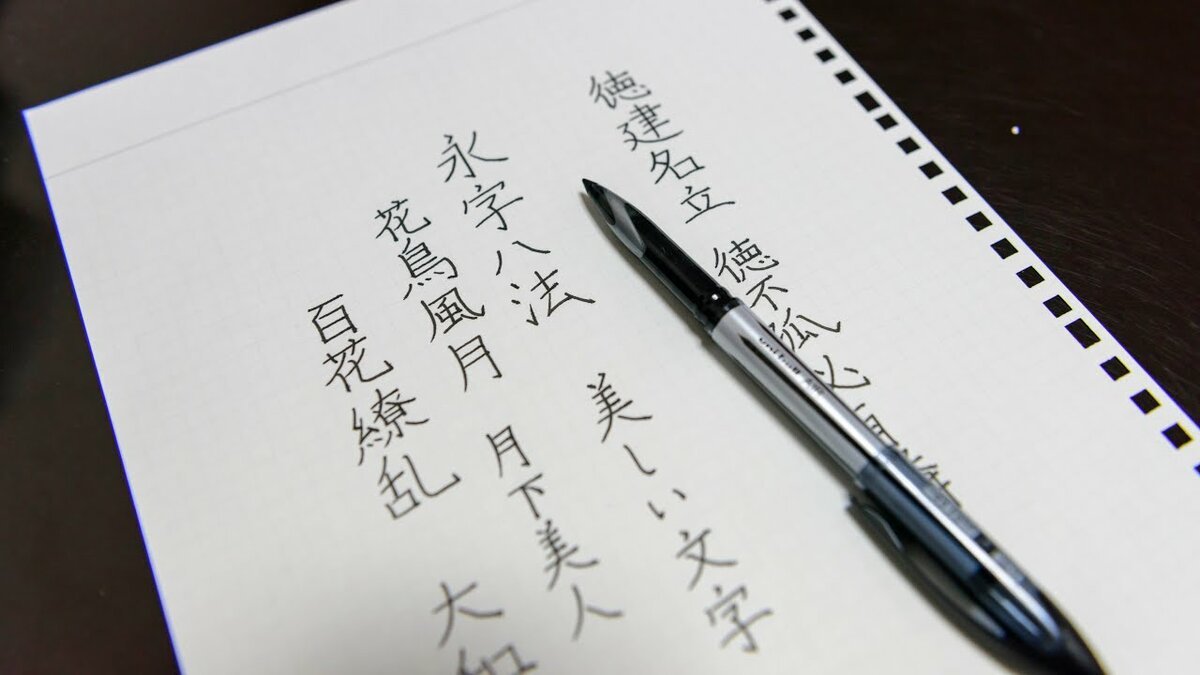 徳建名立 徳不孤必
永字八法 美しい文字
花鳥風月 月下美人
百花繚乱 大和